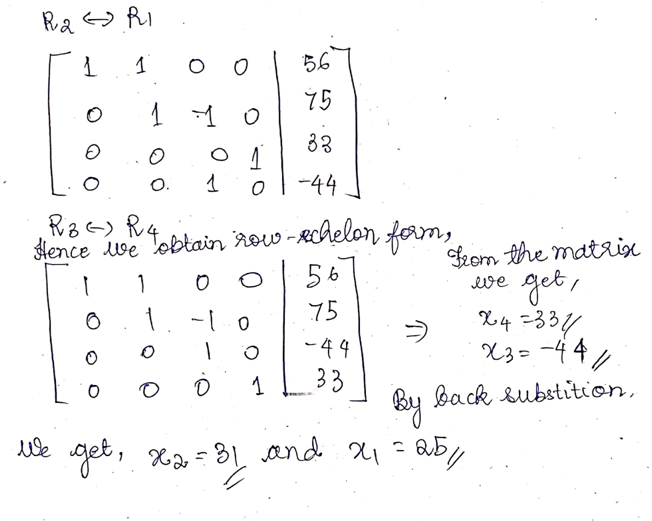 R2 ↔ R1
1 1 0 0 | 56
0 1 -1 0 | 75
0 0 0 1 | 33
0 0 1 0 | -44
R3 ↔ R4
Hence we obtain row-echelon form,
1 1 0 0 | 56
0 1 -1 0 | 75
0 0 1 0 | -44
0 0 0 1 | 33
⇒
From the matrix
we get,
x4 = 33//
x3 = -44//
By back substition.
We get, x2 = 31// and x1 = 25//